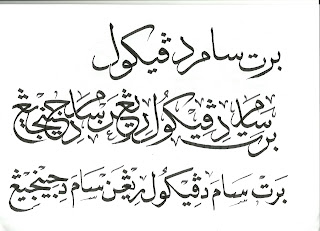 برت سام دڤيكول
برت سام دڤيكول ريڠن سام دجينجيڠ
بَرَت سَامَ دِڤِيكُول رِيڠَن سَامَ دِجِينجِيڠ